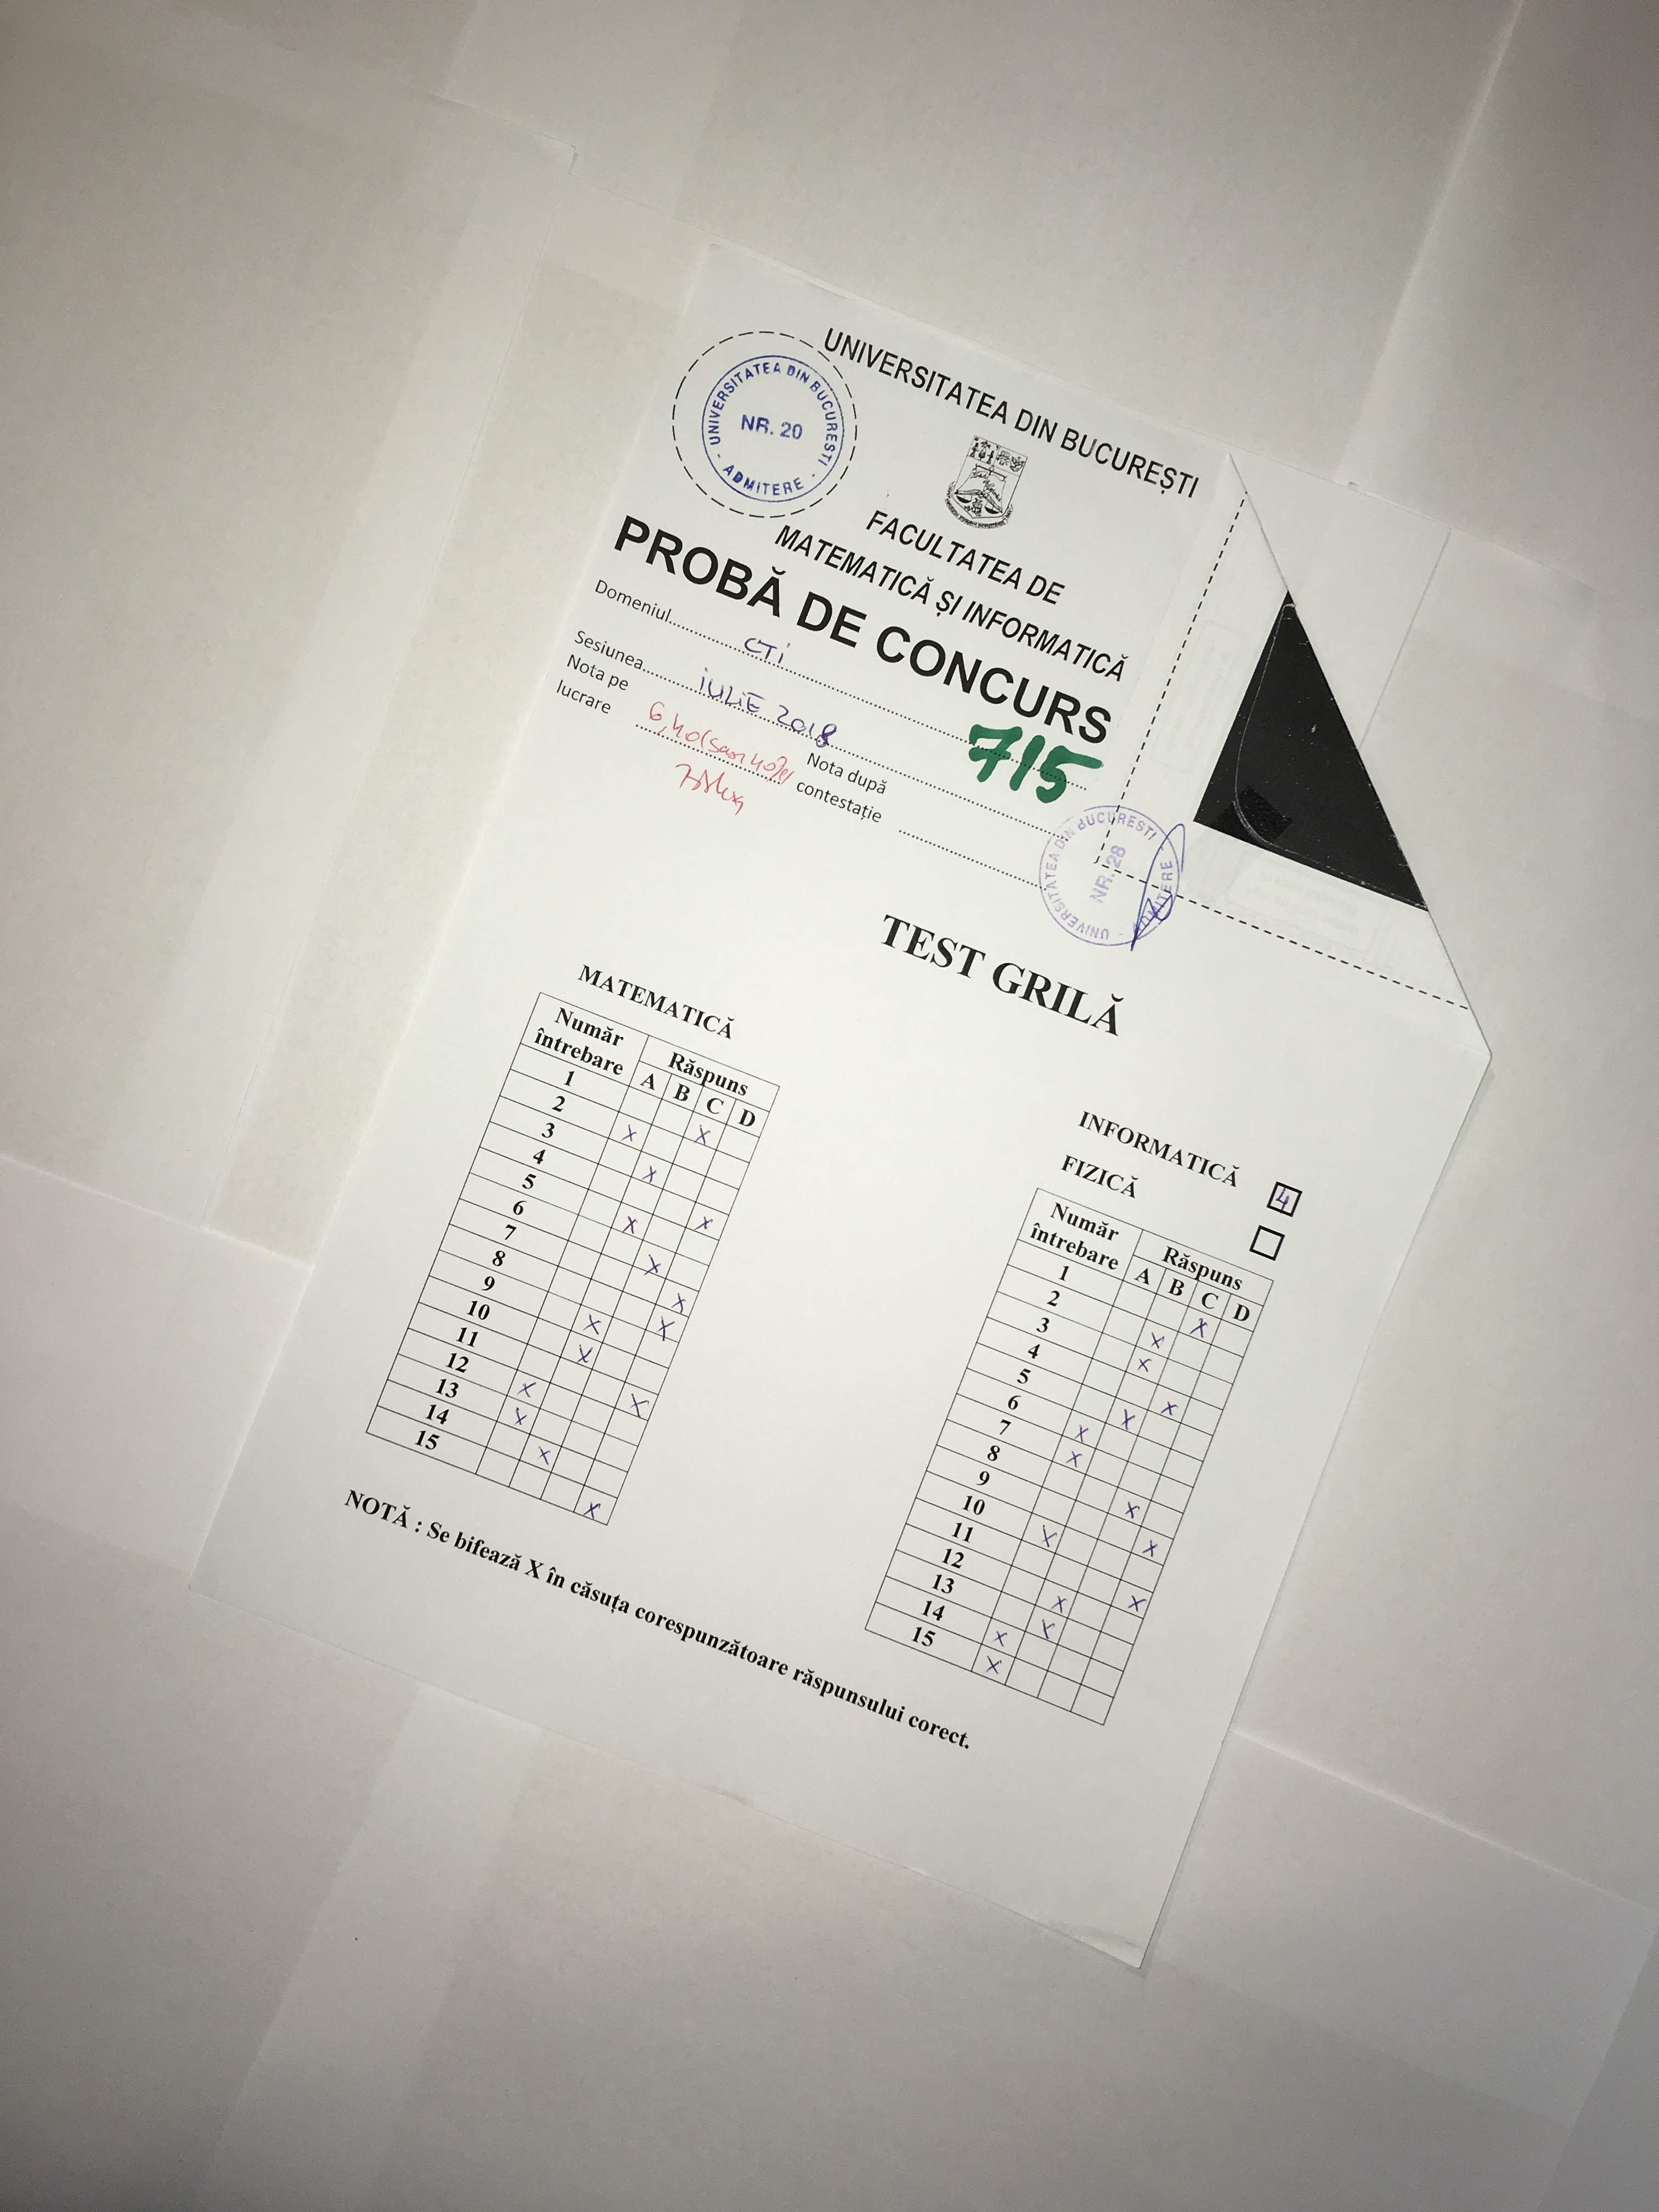 UNIVERSITATEA DIN BUCUREȘTI
UNIVERSITATEA DIN BUCURESTI
NR. 20
ADMITERE
FACULTATEA DE
MATEMATICĂ ȘI INFORMATICĂ
PROBĂ DE CONCURS
Domeniul CTi
715
Sesiunea iULiE 2018
Nota pe lucrare 6,40 Nota după contestație
UNIVERSITATEA DIN BUCURESTI
NR. 28
ADMITERE
TEST GRILĂ
MATEMATICĂ
Număr întrebare Răspuns
A B C D
1 X
2 X
3 X
4 X
5 X
6 X
7 X
8 X
9 X
10 X
11 X
12 X
13 X
14 X
15 X
INFORMATICĂ 4
FIZICĂ
Număr întrebare Răspuns
A B C D
1 X
2 X
3 X
4 X
5 X
6 X
7 X
8 X
9 X
10 X
11 X
12 X
13 X
14 X
15 X
NOTĂ : Se bifează X în căsuța corespunzătoare răspunsului corect.